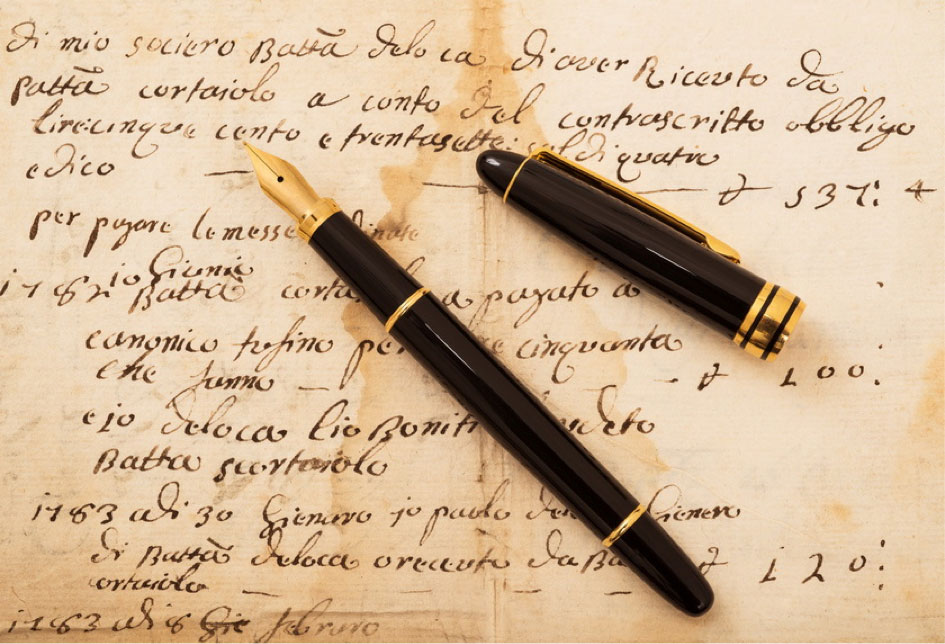 di mio sociero Battā deloca di aver Riceuto da
Battā cortaiolo a conto del contrascritto obbligo
lire cinque cento e trentasette: soldi quatro
e dico 537: 4
per pagare le messe
10 Giunio
1782 Battā a pagato a
canonico tofino cinquanta
che fanno 100:
e io deloca lio Boniti
Batta scortaiolo
1783 adi 30 Gienaro io paolo Gienero
di Battā deloca o receuto da 120:
cortaiolo
1783 adi 8 febraro